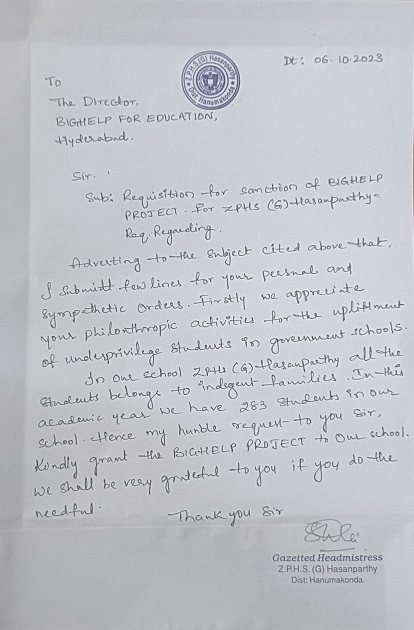 Dt: 06.10.2023
Z.P.H.S.(G) Hasanparthy
Dist: Hanumakonda
To
The Director,
BIGHELP FOR EDUCATION,
Hyderabad.
Sir,
Sub: Requisition for sanction of BIGHELP
PROJECT for ZPHS (G)-Hasanparthy-
Req. Regarding.
Adverting to the subject cited above that,
I submitt few lines for your perusal and
sympathetic orders. Firstly we appreciate
your philonthropic activities for the upliftment
of underprivilege students in government schools.
In our school ZPHS (G)-Hasanparthy all the
students belongs to indegent families. In this
academic year we have 283 students in our
school. Hence my humble request to you Sir,
Kindly grant the BIGHELP PROJECT to our school.
We shall be very grateful to you if you do the
needful.
Thank you Sir
Gazetted Headmistress
Z.P.H.S. (G) Hasanparthy
Dist: Hanumakonda.